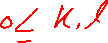 0 ≤ K, l